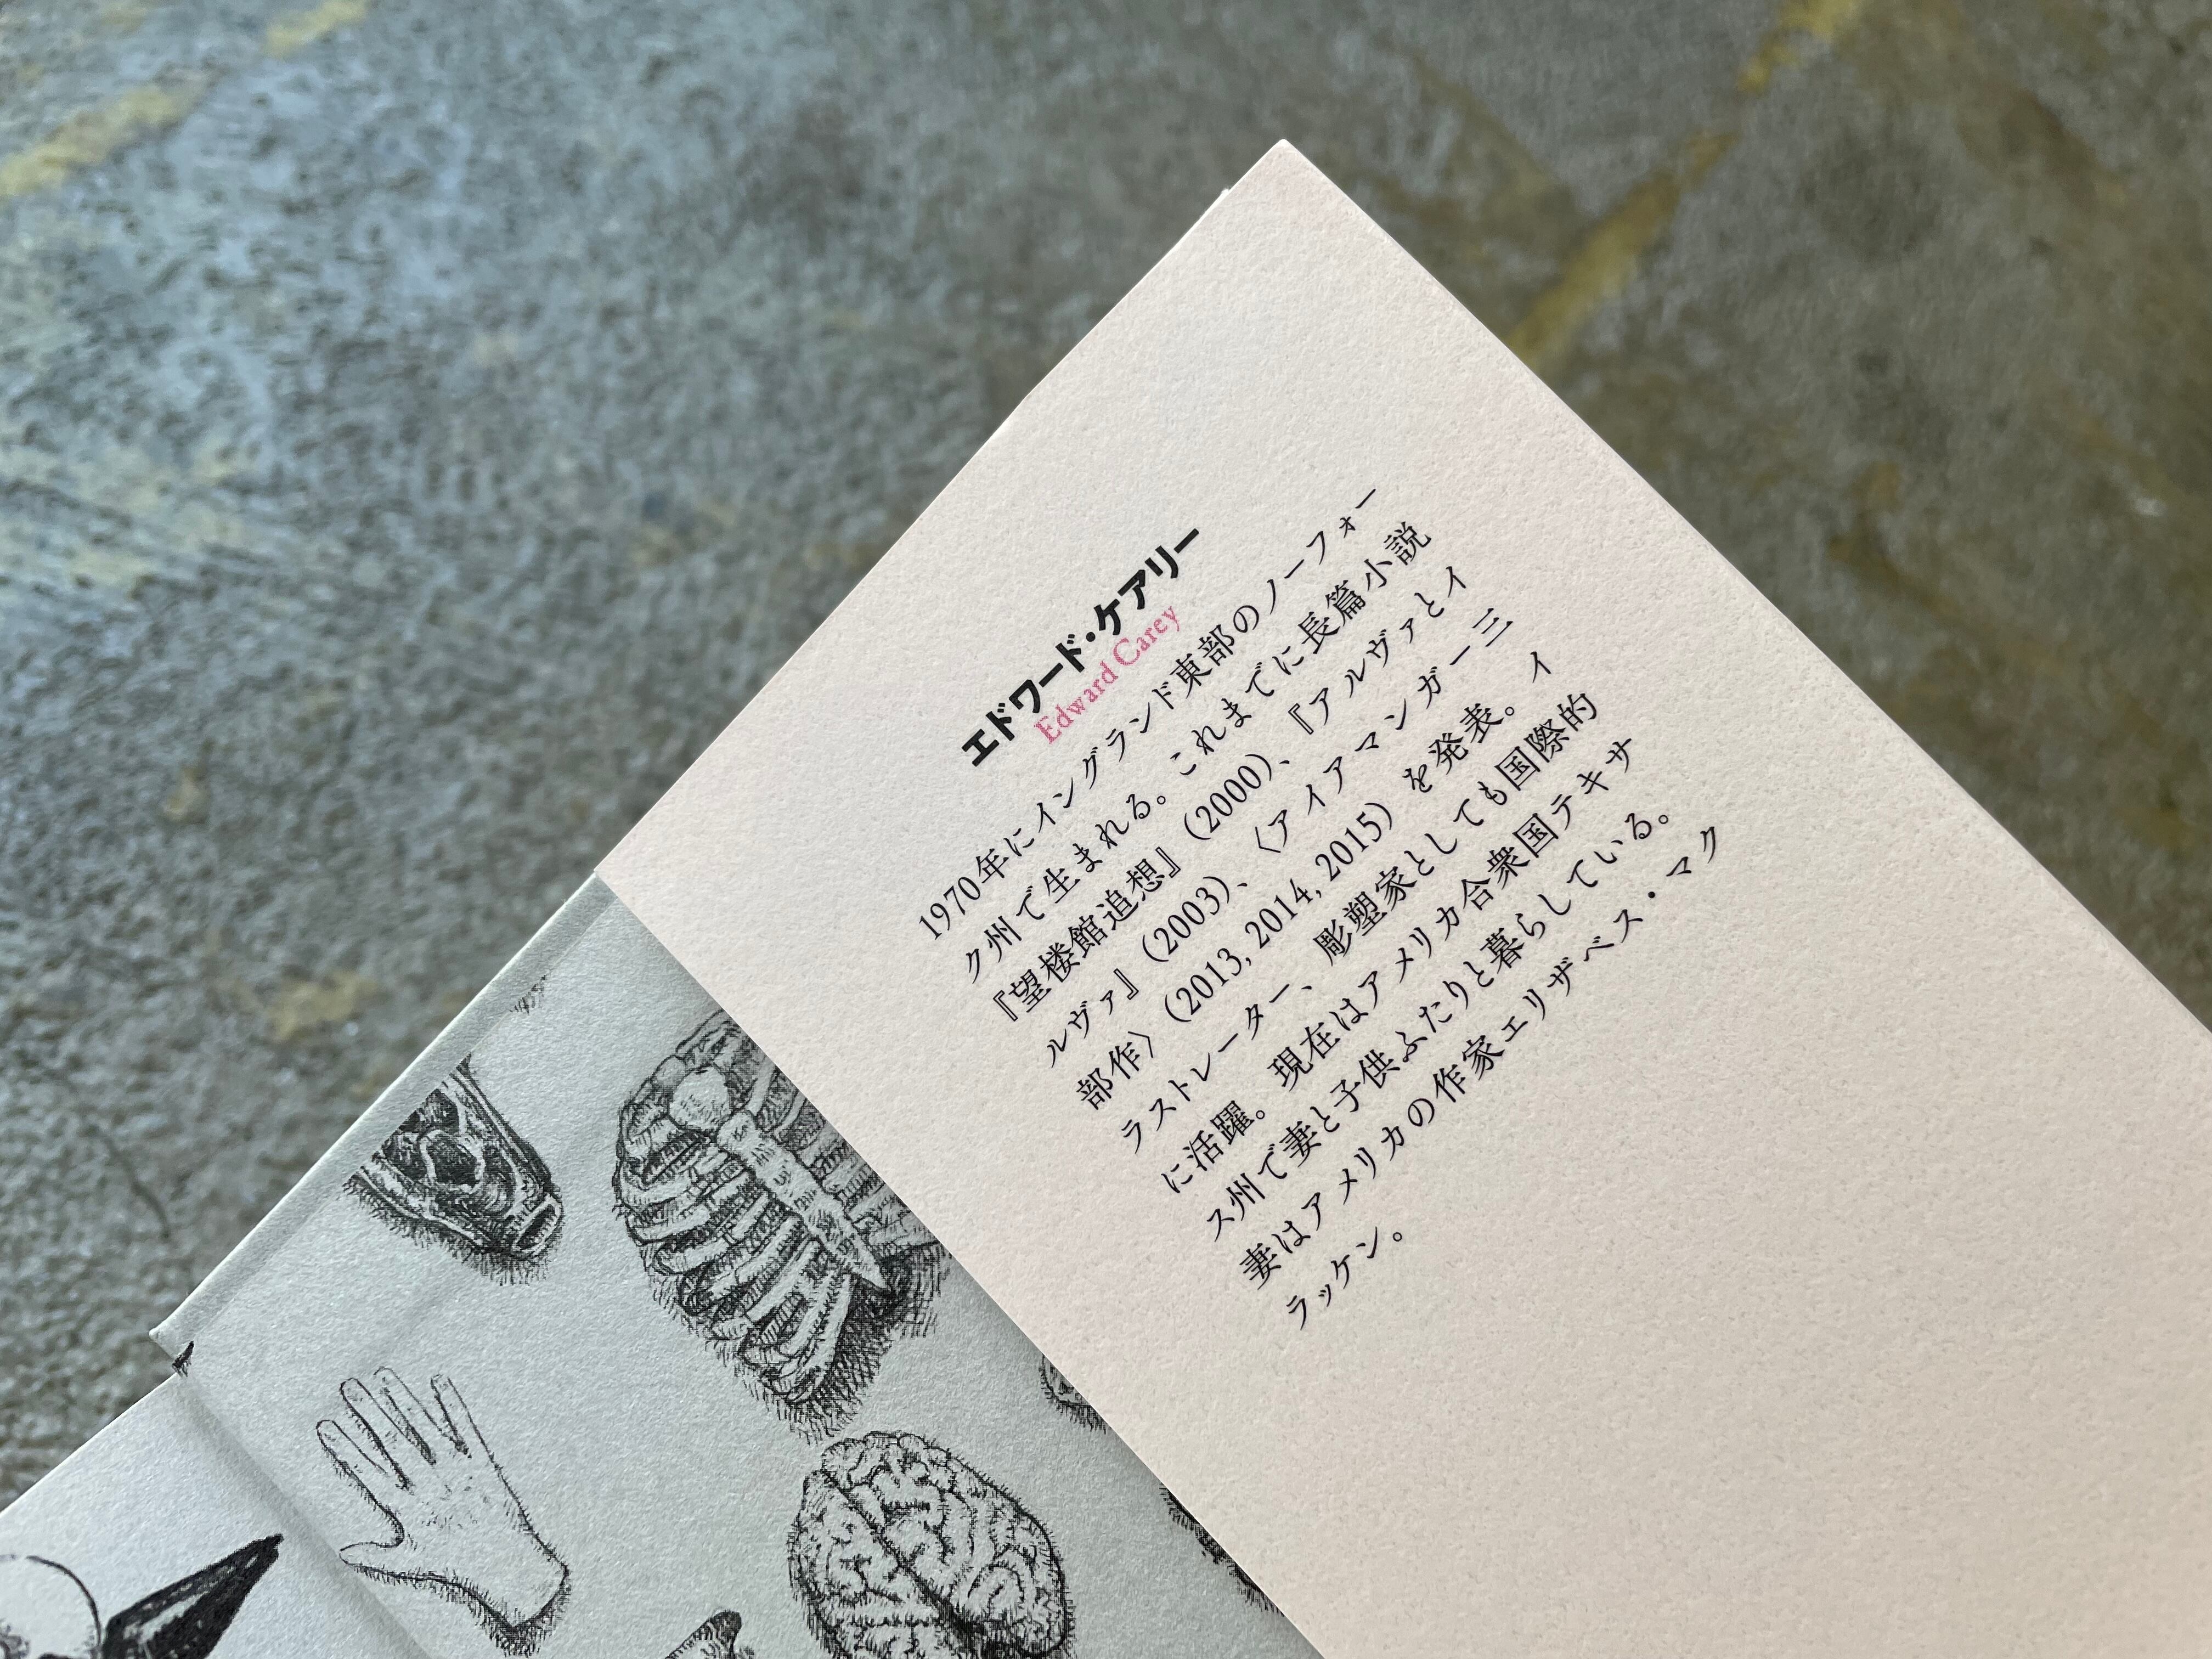 エドワード・ケアリー
Edward Carey
1970年にイングランド東部のノーフォー
ク州で生まれる。これまでに長篇小説
『望楼館追想』（2000）、『アルヴァとイ
ルヴァ』（2003）、〈アイアマンガー三
部作〉（2013, 2014, 2015）を発表。イ
ラストレーター、彫塑家としても国際的
に活躍。現在はアメリカ合衆国テキサ
ス州で妻と子供ふたりと暮らしている。
妻はアメリカの作家エリザベス・マク
ラッケン。